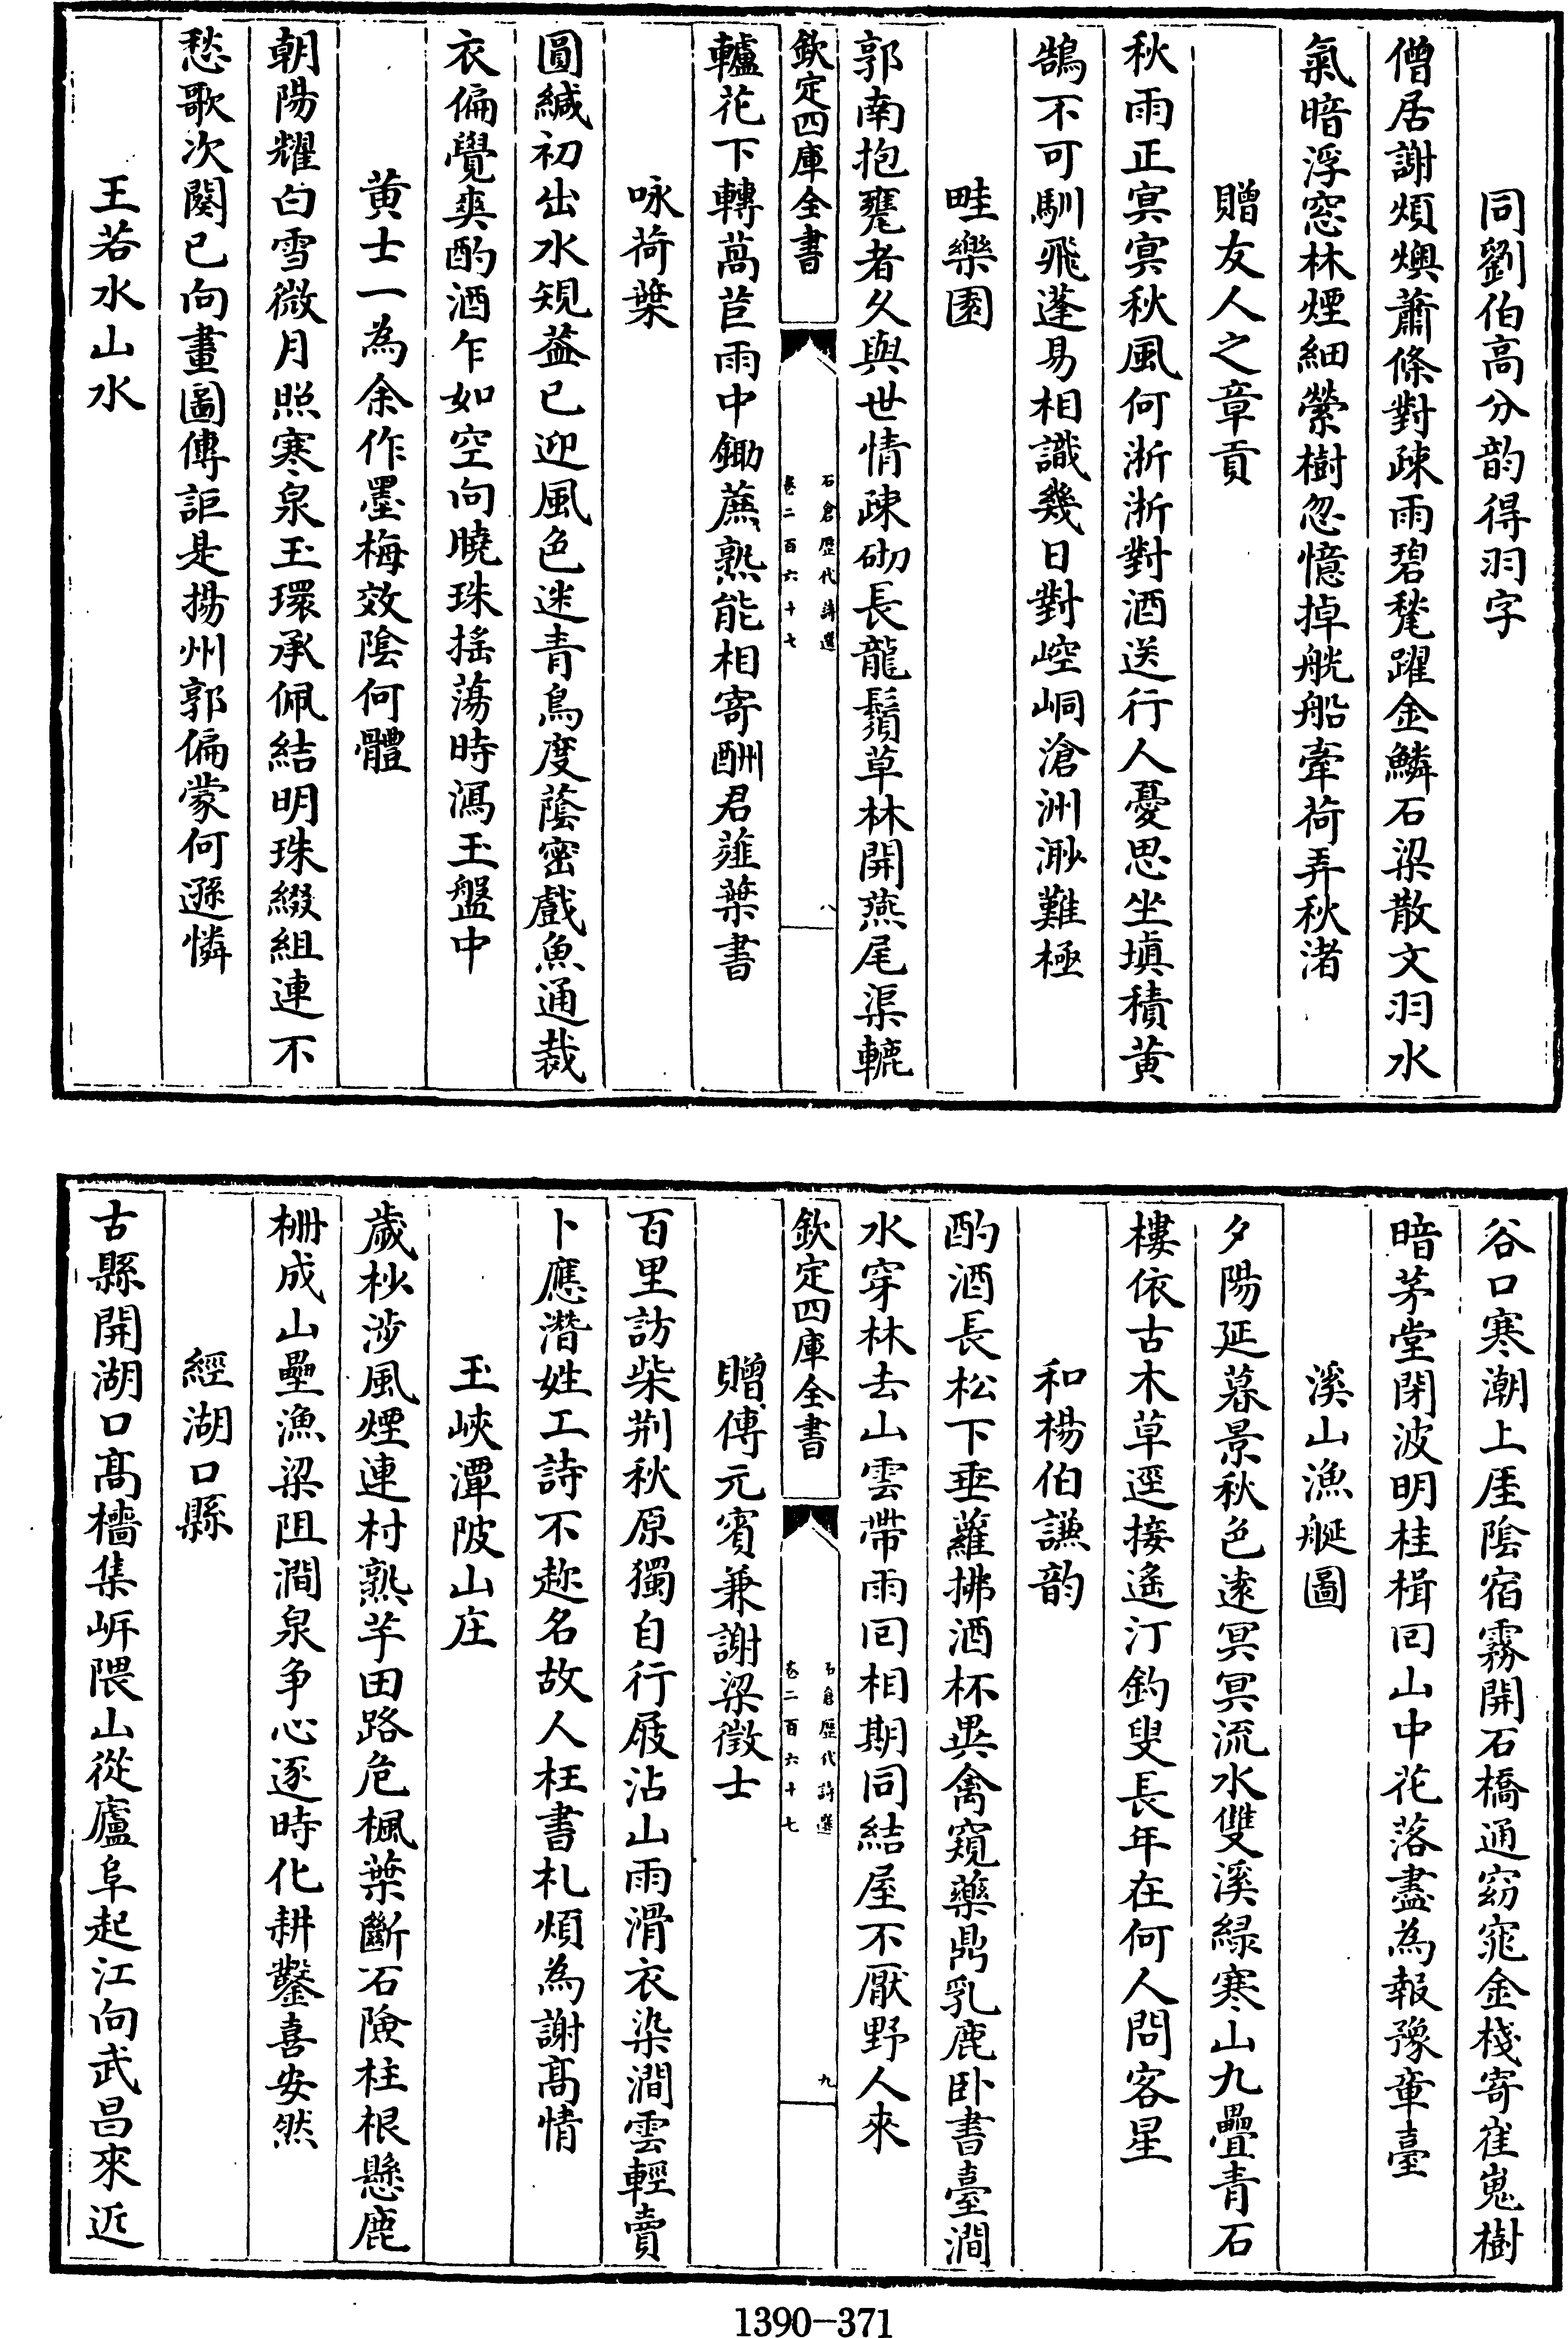 同劉伯高分韵得羽字
僧居謝煩燠蕭條對疎雨碧甃躍金鱗石梁散文羽水
氣暗浮窓林煙細縈樹忽憶掉觥船牽荷弄秋渚
贈友人之章貢
秋雨正冥冥秋風何淅淅對酒送行人憂思坐塡積黄
鵠不可馴飛蓬易相識幾日對崆峒滄洲渺難極
畦樂園
郭南抱甕者久與世情疎砌長龍鬚草林開燕尾渠轆
欽定四庫全書
石倉歷代詩選
卷二百六十七
八
轤花下轉萵苣雨中鋤蔗熟能相寄酬君薤葉書
咏荷葉
圓緘初出水䂓葢已迎風色迷青鳥度蔭密戲魚通裁
衣偏覺爽酌酒乍如空向曉珠搖蕩時瀉玉盤中
黄士一為余作墨梅效陰何體
朝陽耀白雪微月照寒泉玉環承佩結明珠綴組連不
愁歌次闋已向畫圖傳詎是揚州郭偏蒙何遜憐
王若水山水
谷口寒潮上厓陰宿霧開石橋通窈窕金棧寄崔嵬樹
暗茅堂閉波明桂楫囘山中花落盡為報豫章臺
溪山漁艇圖
夕陽延暮景秋色逺冥冥流水雙溪緑寒山九疊青石
樓依古木草逕接遙汀釣叟長年在何人問客星
和楊伯謙韵
酌酒長松下垂蘿拂酒杯異禽窺藥鼎乳鹿卧書臺澗
水穿林去山雲帶雨囘相期同結屋不厭野人來
欽定四庫全書
石倉歷代詩選
卷二百六十七
九
贈傅元賓兼謝梁徵士
百里訪柴荆秋原獨自行屐沾山雨滑衣染澗雲輕賣
卜應潛姓工詩不趂名故人枉書札煩為謝髙情
玉峽潭陂山庄
歲杪涉風煙連村熟芋田路危楓葉斷石險柱根懸鹿
柵成山壘漁梁阻澗泉争心逐時化耕鑿喜安然
經湖口縣
古縣開湖口髙檣集㟁隈山從廬阜起江向武昌來近
1390-371